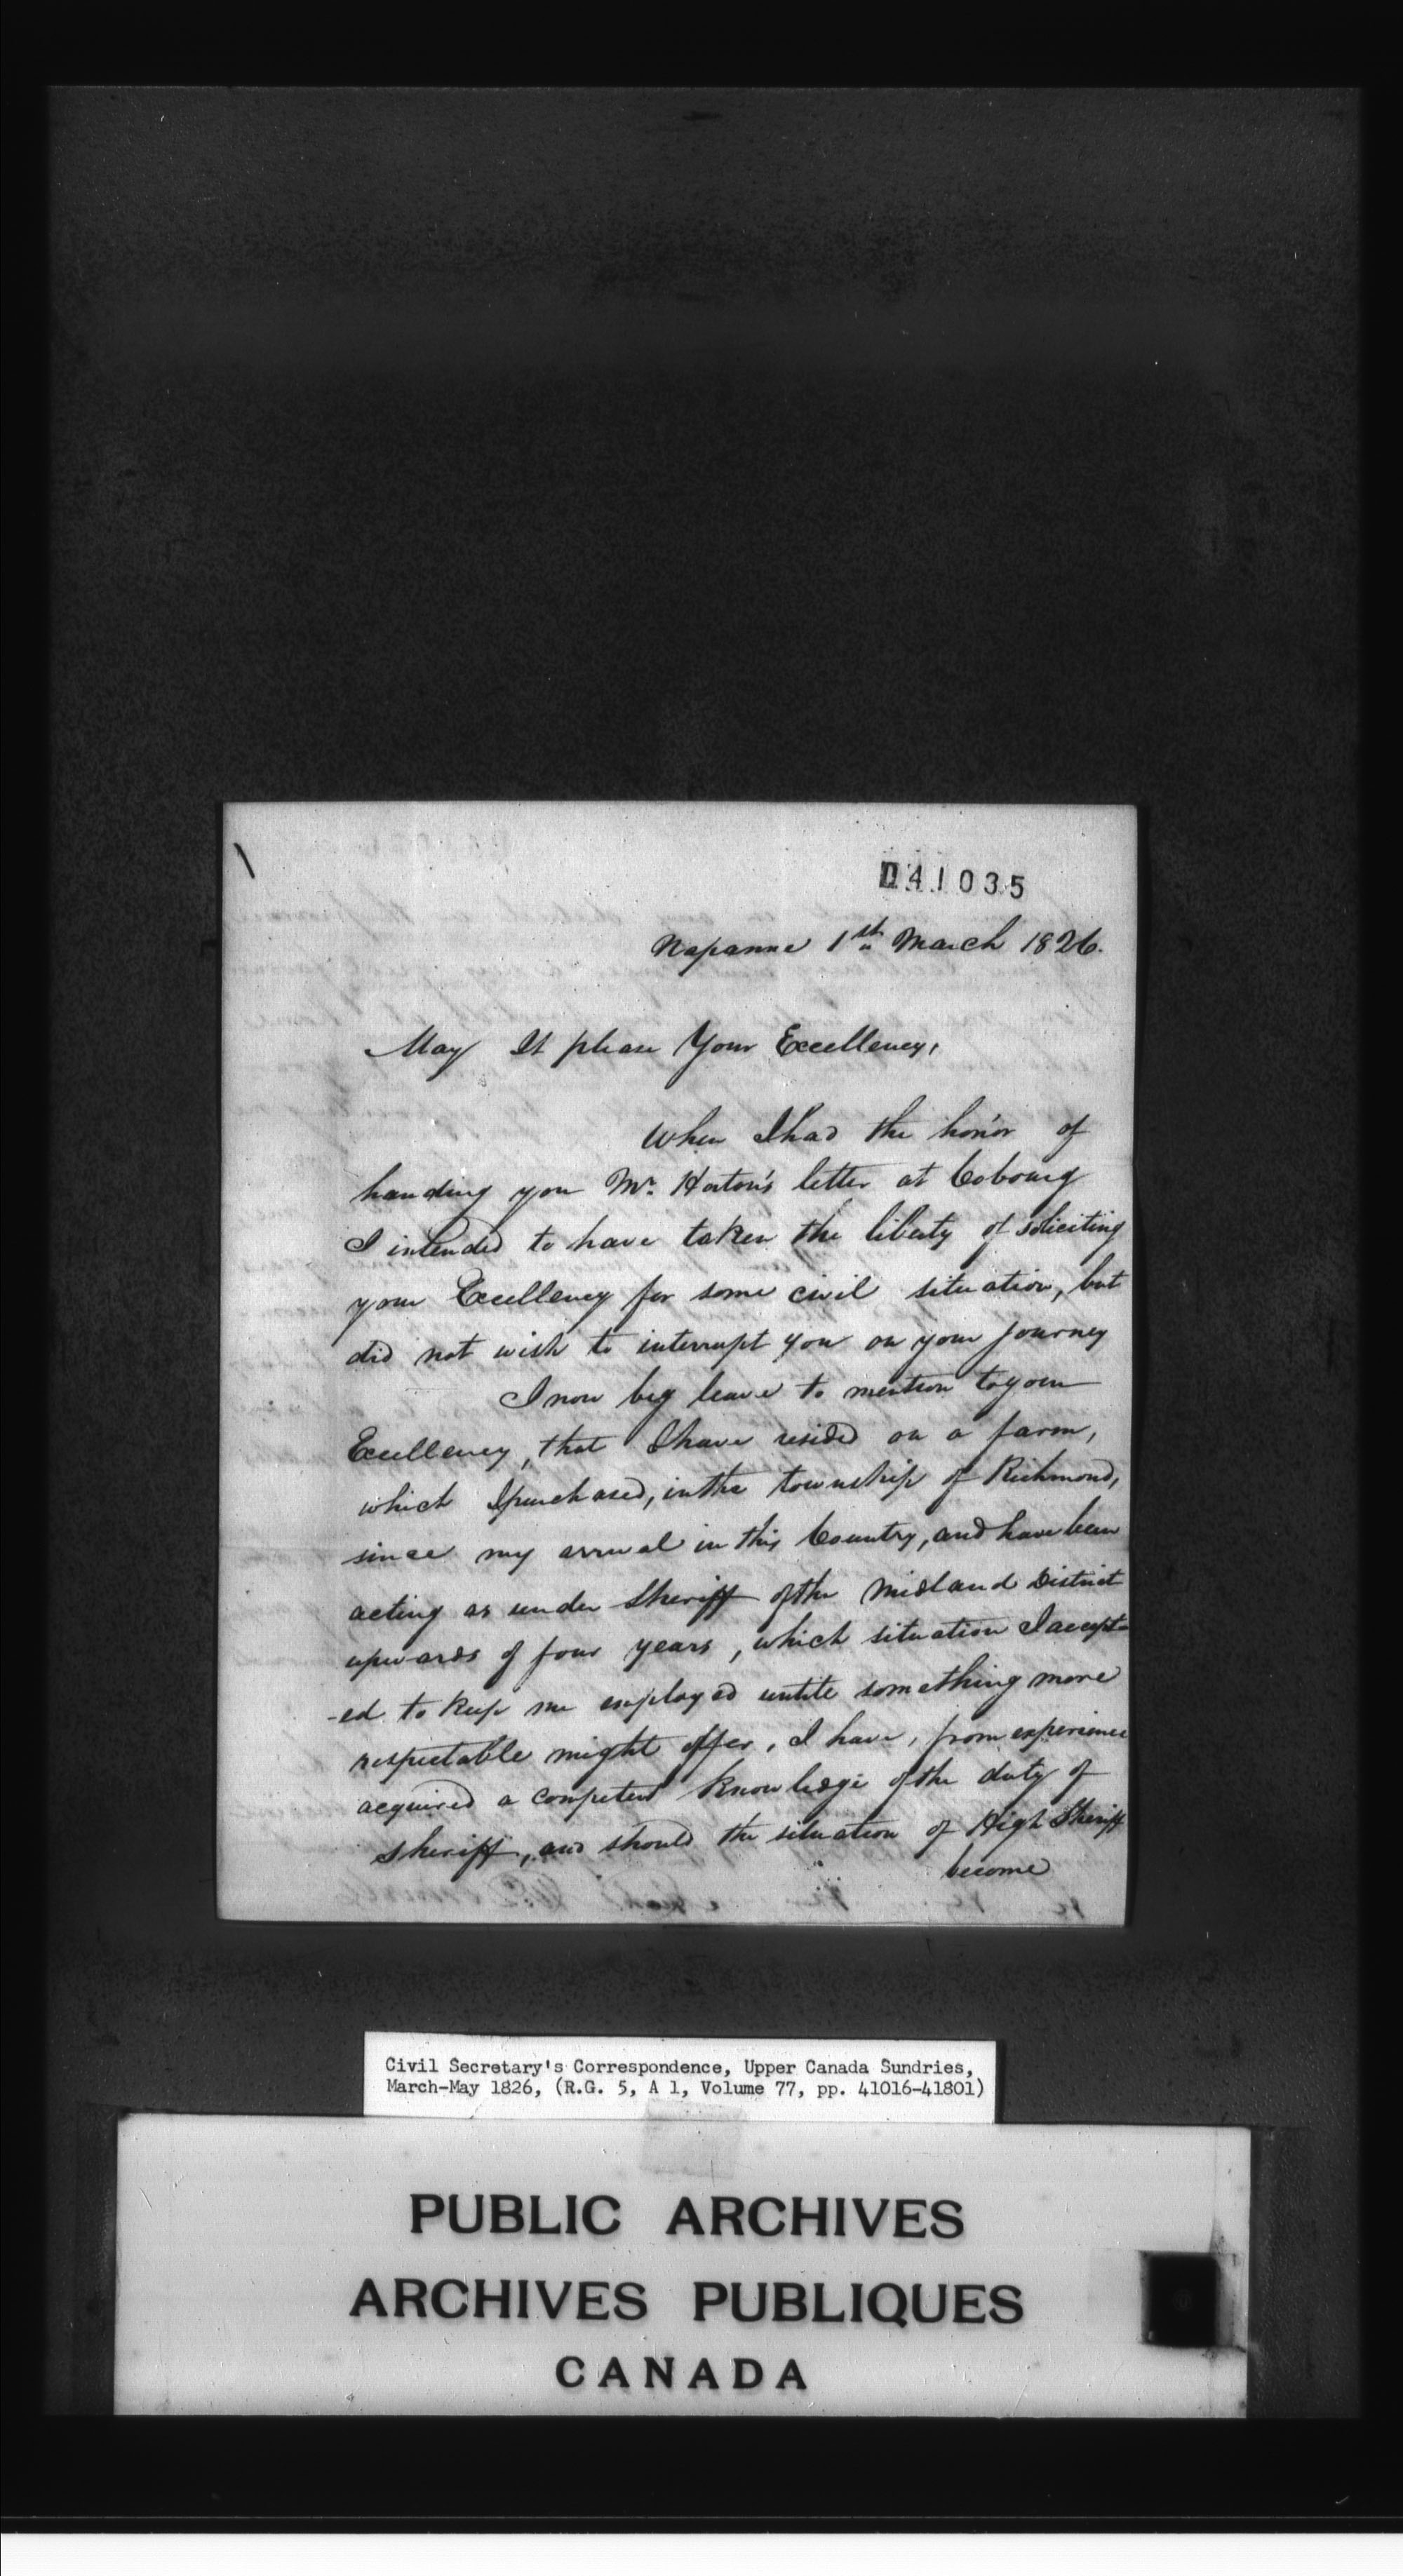 041035
Napanne 1st March 1826.
May It please Your Excellency,
When I had the honor of
handing you Mr. Horton's letter at Cobourg
I intended to have taken the liberty of soliciting
your Excellency for some civil situation, but
did not wish to interrupt you on your journey
I now beg leave to mention to your
Excellency, that I have resided on a farm,
which I purchased, in the township of Richmond,
since my arrival in this Country, and have been
acting as under Sheriff of the Midland District
upwards of four years, which situation I accept-
-ed to keep me employed untile something more
respectable might offer, I have, from experience
acquired a competent knowledge of the duty of
Sheriff, and should the situation of High Sheriff
become
Civil Secretary's Correspondence, Upper Canada Sundries,
March-May 1826, (R.G. 5, A 1, Volume 77, pp. 41016-41801)
PUBLIC ARCHIVES
ARCHIVES PUBLIQUES
CANADA